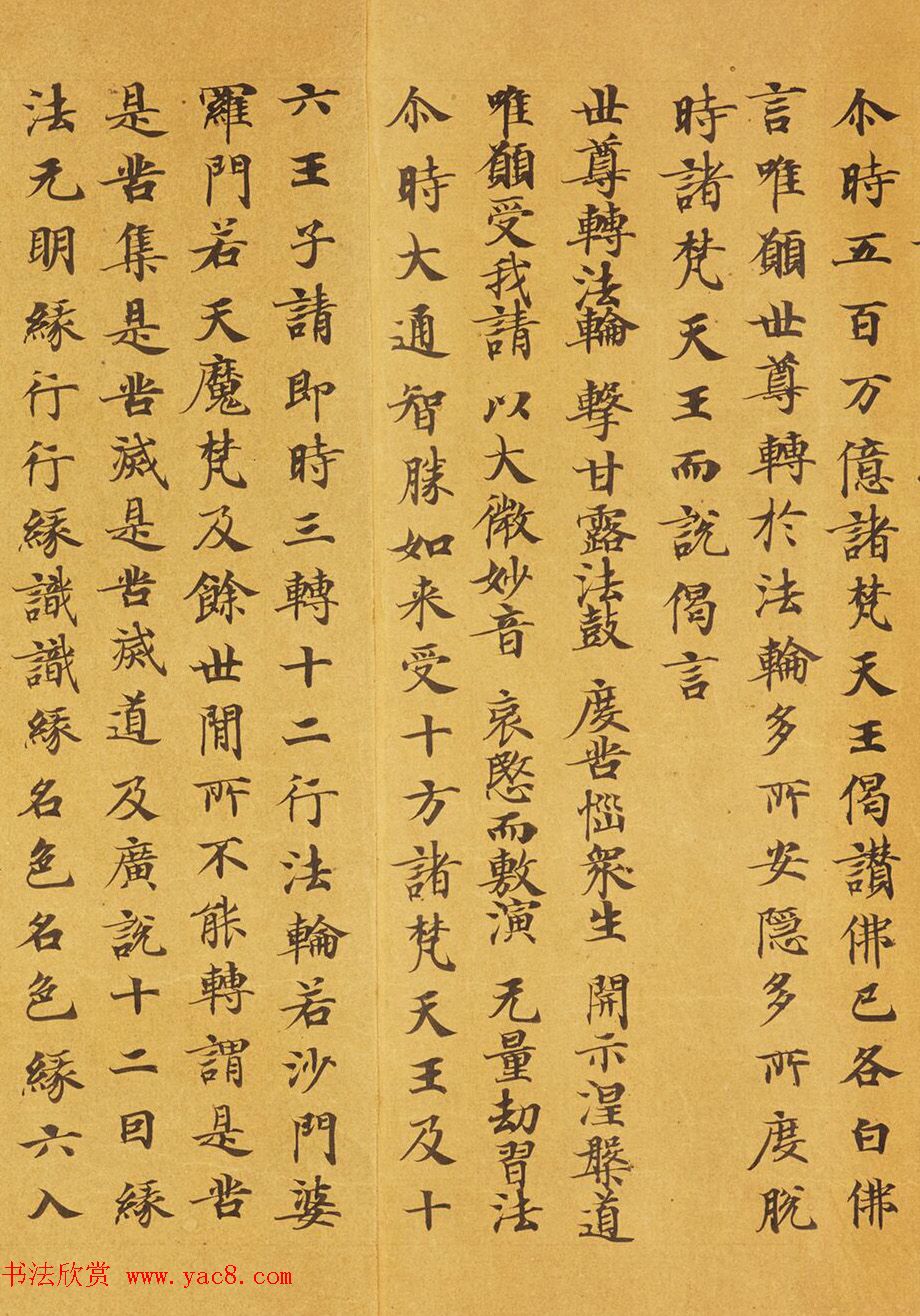 尒時五百万億諸梵天王偈讃佛已各白佛
言唯願世尊轉於法輪多所安隠多所度脱
時諸梵天王而說偈言
世尊轉法輪 擊甘露法鼓 度苦惱衆生 開示涅槃道
唯願受我請 以大微妙音 哀愍而敷演 无量劫習法
尒時大通智勝如来受十方諸梵天王及十
六王子請即時三轉十二行法輪若沙門婆
羅門若天魔梵及餘世閒所不能轉謂是苦
是苦集是苦滅是苦滅道及廣說十二因緣
法无明緣行行緣識識緣名色名色緣六入
书法欣赏 www.yac8.com